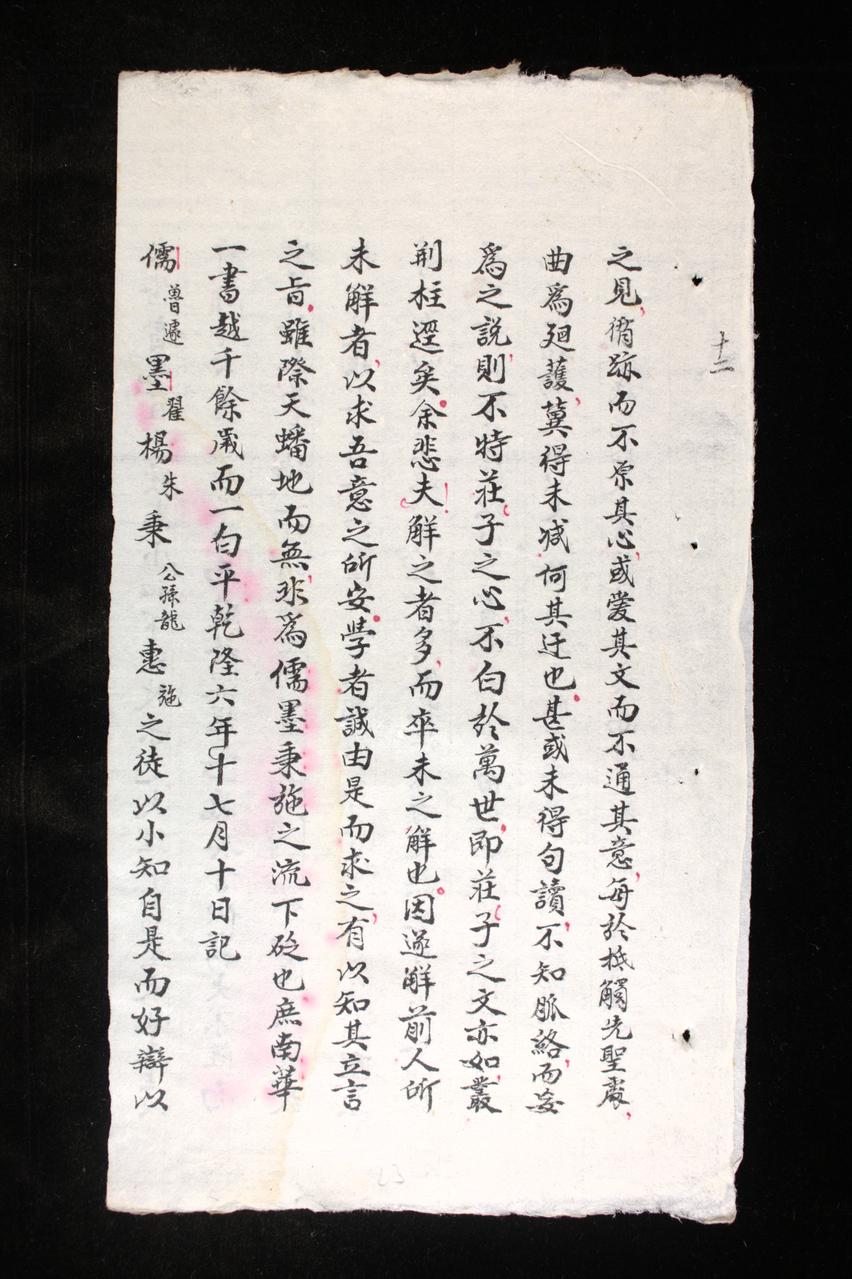 十二
之見徇跡而不原其心或愛其文而不通其意每於抵觸先聖處
曲爲廻護冀得未減何其迂也甚或未得句讀不知脈絡而妄
爲之説則不特莊子之心不白於萬世即莊子之文亦如叢
荆柱逕矣余悲夫觧之者多而卒未之觧也因遂觧前人所
未觧者以求吾意之所安學者誠由是而求之有以知其立言
之旨雖際天蟠地而無非爲儒墨秉施之流下砭也庶南華
一書越千餘歲而一白乎乾隆六年十七月十日記
儒魯遽墨翟楊朱秉公孫龍惠施之徒以小知自是而好辯以
23